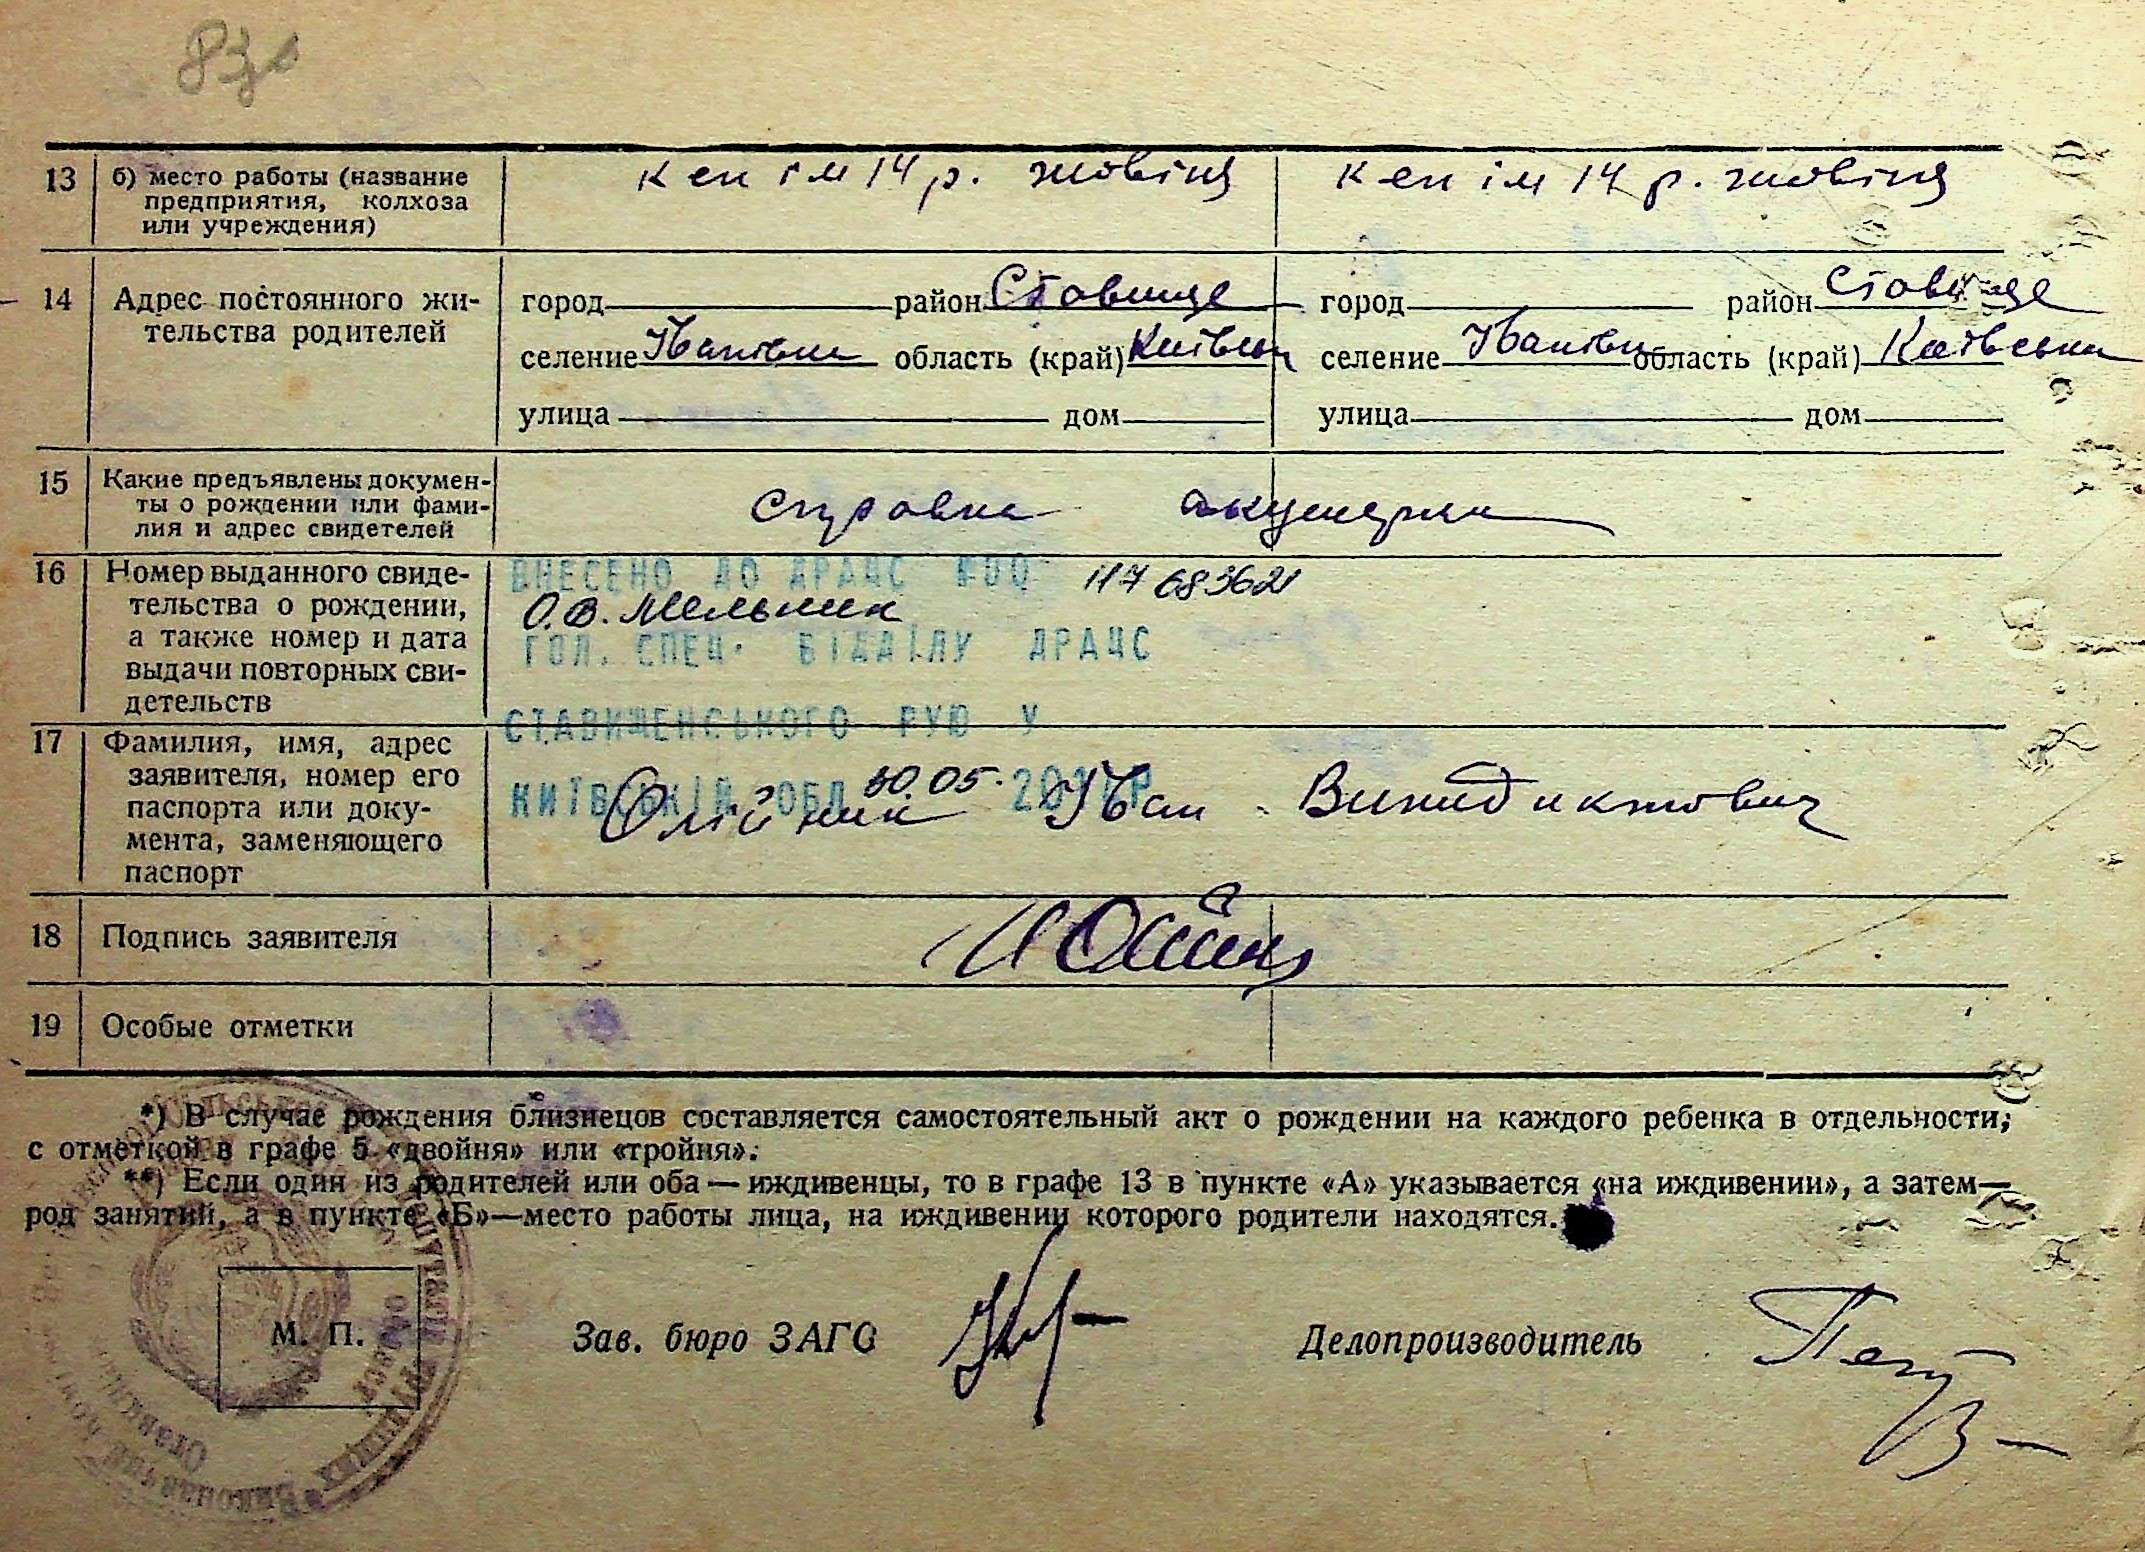 13 б) место работы (название предприятия, колхоза или учреждения)
ім 14 р. жовтня
ім 14 р. жовтня
14 Адрес постоянного жительства родителей
город район Ставище
селение Іванівка область (край) Київська
улица дом
город район Ставище
селение Іванівка область (край) Київська
улица дом
15 Какие предъявлены документы о рождении или фамилия и адрес свидетелей
справка акушерки
16 Номер выданного свидетельства о рождении, а также номер и дата выдачи повторных свидетельств
ВНЕСЕНО ДО ДРАЦС
683621
О.В. Мельник
ГОЛ. СПЕЦ. ВІДДІЛУ ДРАЦС
СТАВИЩЕНСЬКОГО РУЮ У
КИЇВСЬКІЙ ОБЛ 30.05.
17 Фамилия, имя, адрес заявителя, номер его паспорта или документа, заменяющего паспорт
Олійник Іван
18 Подпись заявителя
19 Особые отметки
*) В случае рождения близнецов составляется самостоятельный акт о рождении на каждого ребенка в отдельности,
с отметкой в графе 5 «двойня» или «тройня».
**) Если один из родителей или оба — иждивенцы, то в графе 13 в пункте «А» указывается «на иждивении», а затем—
род занятий, а в пункте «Б»—место работы лица, на иждивении которого родители находятся.
М. П.
Зав. бюро ЗАГС
Делопроизводитель